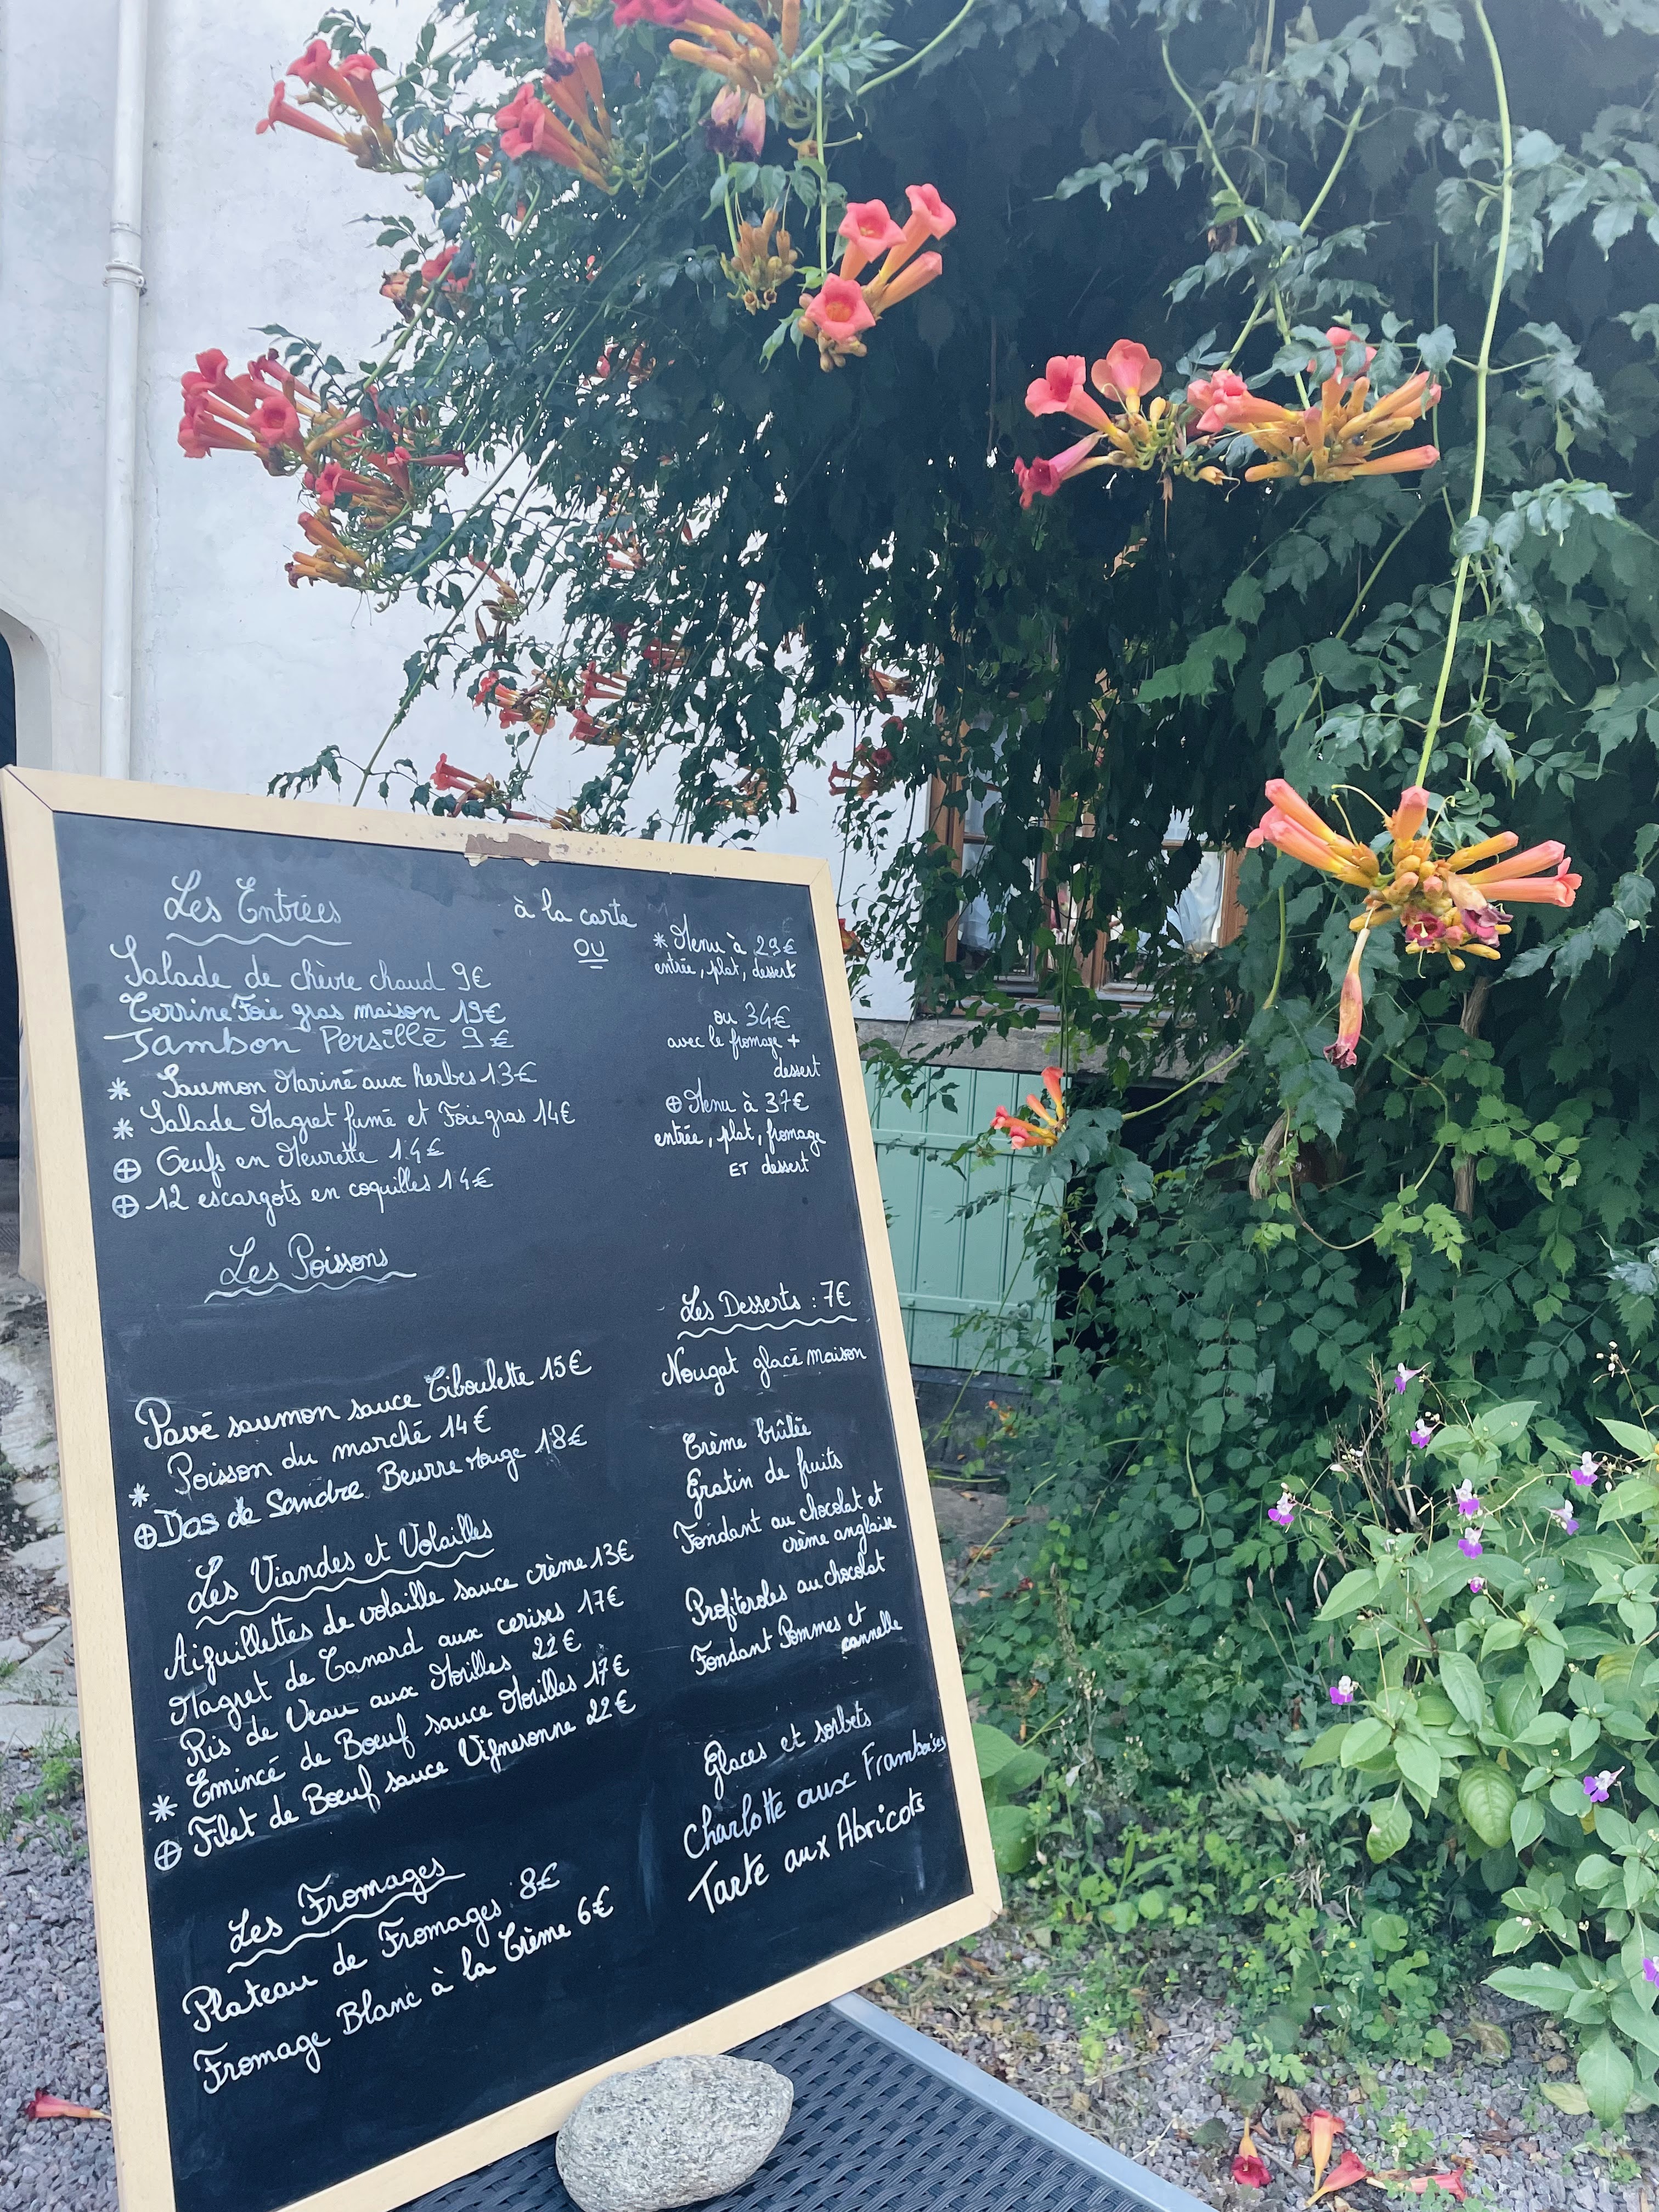 Les Entrées
Salade de chèvre chaud 9€
Terrine Foie gras maison 19€
Jambon Persillé 9€
* Saumon Mariné aux herbes 13€
* Salade Magret fumé et Foie gras 14€
⊕ Oeufs en Meurette 14€
⊕ 12 escargots en coquilles 14€
Les Poissons
Pavé saumon sauce Ciboulette 15€
* Poisson du marché 14€
⊕ Dos de Sandre Beurre rouge 18€
Les Viandes et Volailles
Aiguillettes de volaille sauce crème 13€
Magret de Canard aux cerises 17€
Ris de Veau aux Morilles 22€
* Emincé de Boeuf sauce Morilles 17€
⊕ Filet de Boeuf sauce Vigneronne 22€
Les Fromages
Plateau de Fromages 8€
Fromage Blanc à la Crème 6€
à la carte
OU
* Menu à 29€
entrée, plat, dessert
ou 34€
avec le fromage +
dessert
⊕ Menu à 37€
entrée, plat, fromage
ET dessert
Les Desserts : 7€
Nougat glacé maison
Crème brûlée
Gratin de fruits
Fondant au chocolat et
crème anglaise
Profiteroles au chocolat
Fondant Pommes et
cannelle
Glaces et sorbets
Charlotte aux Framboises
Tarte aux Abricots